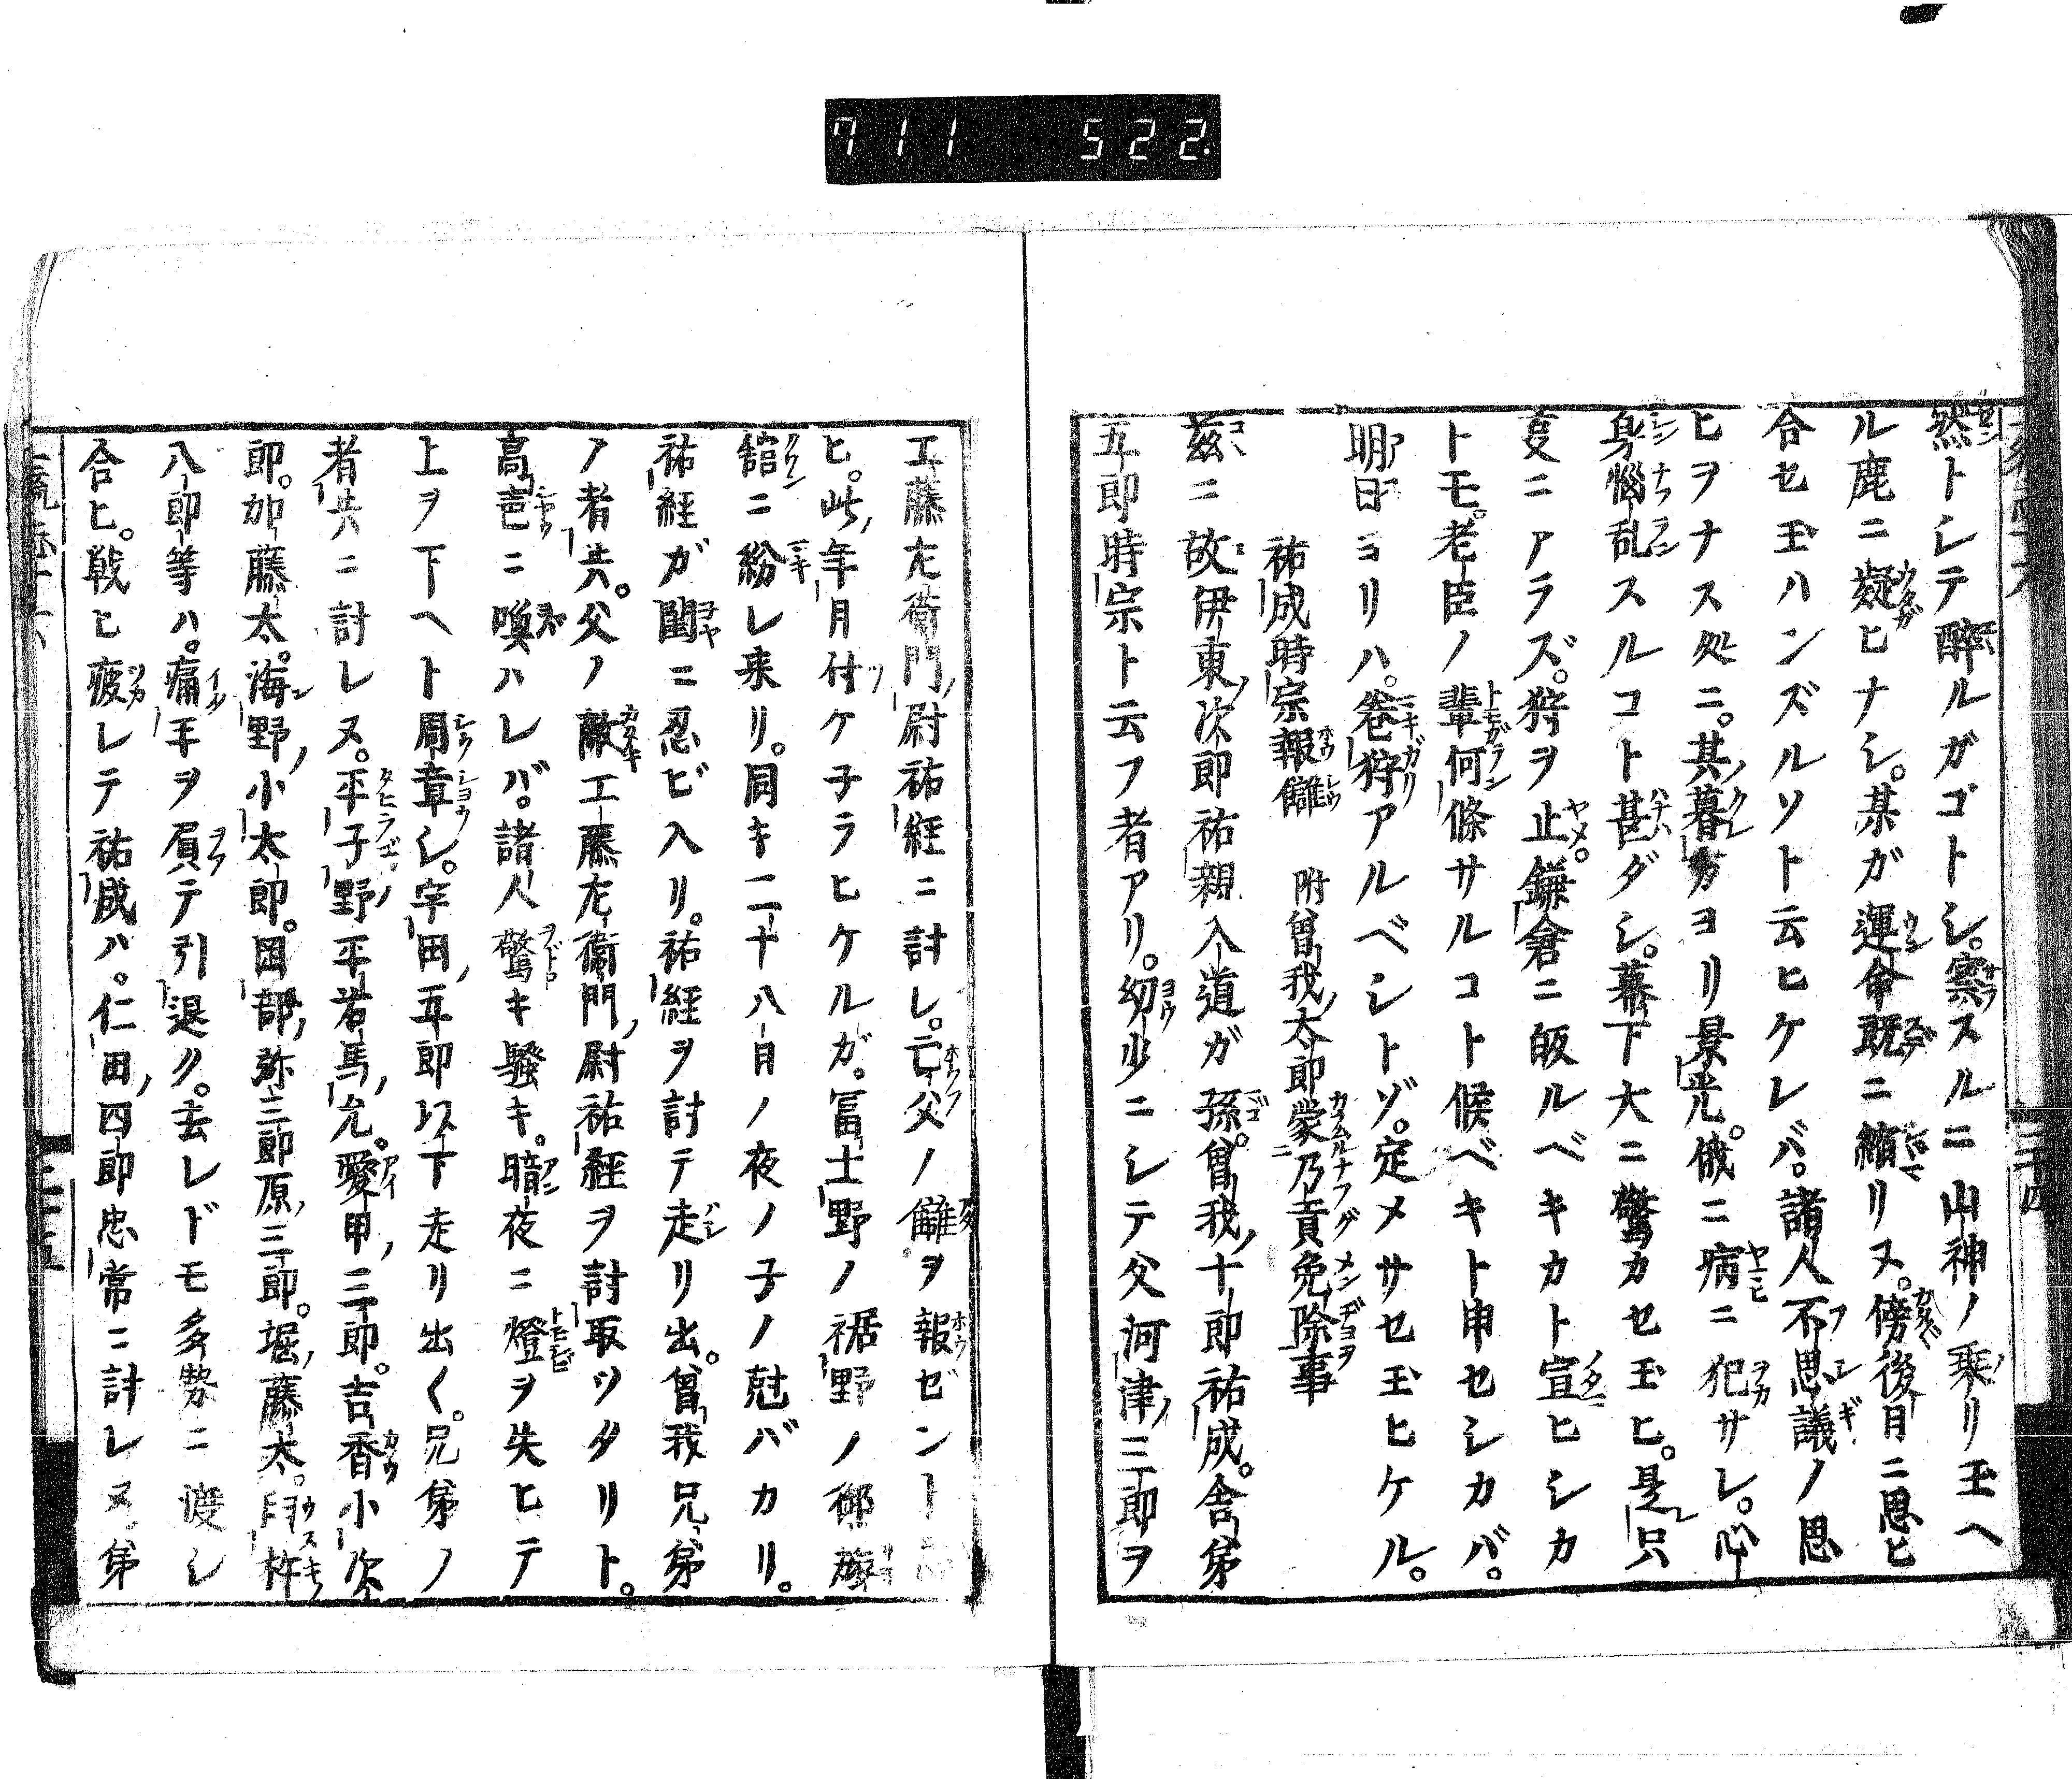 711 522.
然トシテ醉ルガゴトシ。察スルニ山神ノ乗リ玉ヘ
ル鹿ニ疑ヒナシ。某ガ運命既ニ縮リヌ。傍後日ニ思ヒ
合セ玉ハンズルソト云ヒケレバ。諸人不思議ノ思
ヒヲナス処ニ。其暮方ヨリ景光。俄ニ病ニ犯サレ。心
身惱乱スルコト甚ダシ。幕下大ニ驚カセ玉ヒ。是只
叓ニアラズ。狩ヲ止。鎌倉ニ皈ルベキカト宣ヒシカ
トモ。老臣ノ輩何條サルコト候ベキト申セシカバ。
明日ヨリハ。卷狩アルベシトゾ。定メサセ玉ヒケル。
祐成時宗報讎 附曾我太郎蒙乃貢免除事
茲ニ故伊東次郎祐親入道ガ孫。曾我十郎祐成。舎弟
五郎時宗ト云フ者アリ。幼少ニシテ父河津三郎ヲ
工藤左衛門尉祐経ニ討レ。亡父ノ讎ヲ報ゼント
ヒ。此年月付ケ子ラヒケルガ。冨士野ノ裾野ノ御旅
舘ニ紛レ来リ。同キ二十八日ノ夜ノ子ノ尅バカリ。
祐経ガ閨ニ忍ビ入リ。祐経ヲ討テ走リ出。曾我兄弟
ノ者共。父ノ敵工藤左衛門尉祐経ヲ討取ツタリト。
高声ニ喚ハレバ。諸人驚キ騒キ。暗夜ニ燈ヲ失ヒテ
上ヲ下ヘト周章シ。宇田五郎以下走リ出ク。兄弟ノ
者共ニ討レヌ。平子野平若馬允。愛甲三郎。吉香小次
郎。加藤太。海野小太郎。岡部弥三郎原三郎。堀藤太。臼杵
八郎等ハ。痛手ヲ屓テ引退ク。去レドモ多勢ニ渡シ
合ヒ。戦ヒ疲レテ祐成ハ。仁田四郎忠常ニ討レヌ。弟